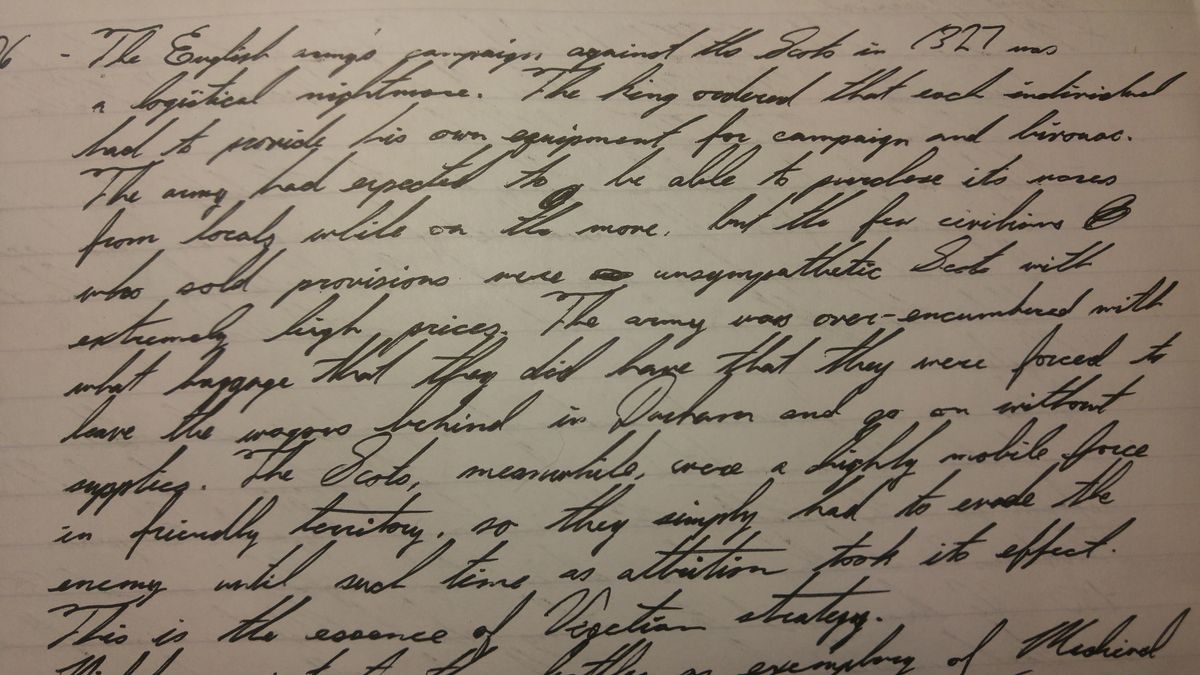 - The English army's campaign against the Scots in 1327 was
a logistical nightmare. The king ordered that each individual
had to provide his own equipment for campaign and bivouac.
The army had expected to be able to purchase its wares
from locals while on the move, but the few civilians
who sold provisions were unsympathetic Scots with
extremely high prices. The army was over-encumbered with
what baggage that they did have that they were forced to
leave the wagons behind in Durham and go on without
supplies. The Scots, meanwhile, were a highly mobile force
in friendly territory, so they simply had to evade the
enemy until such time as attrition took its effect.
This is the essence of Vegetian strategy.
exemplary of Medieval